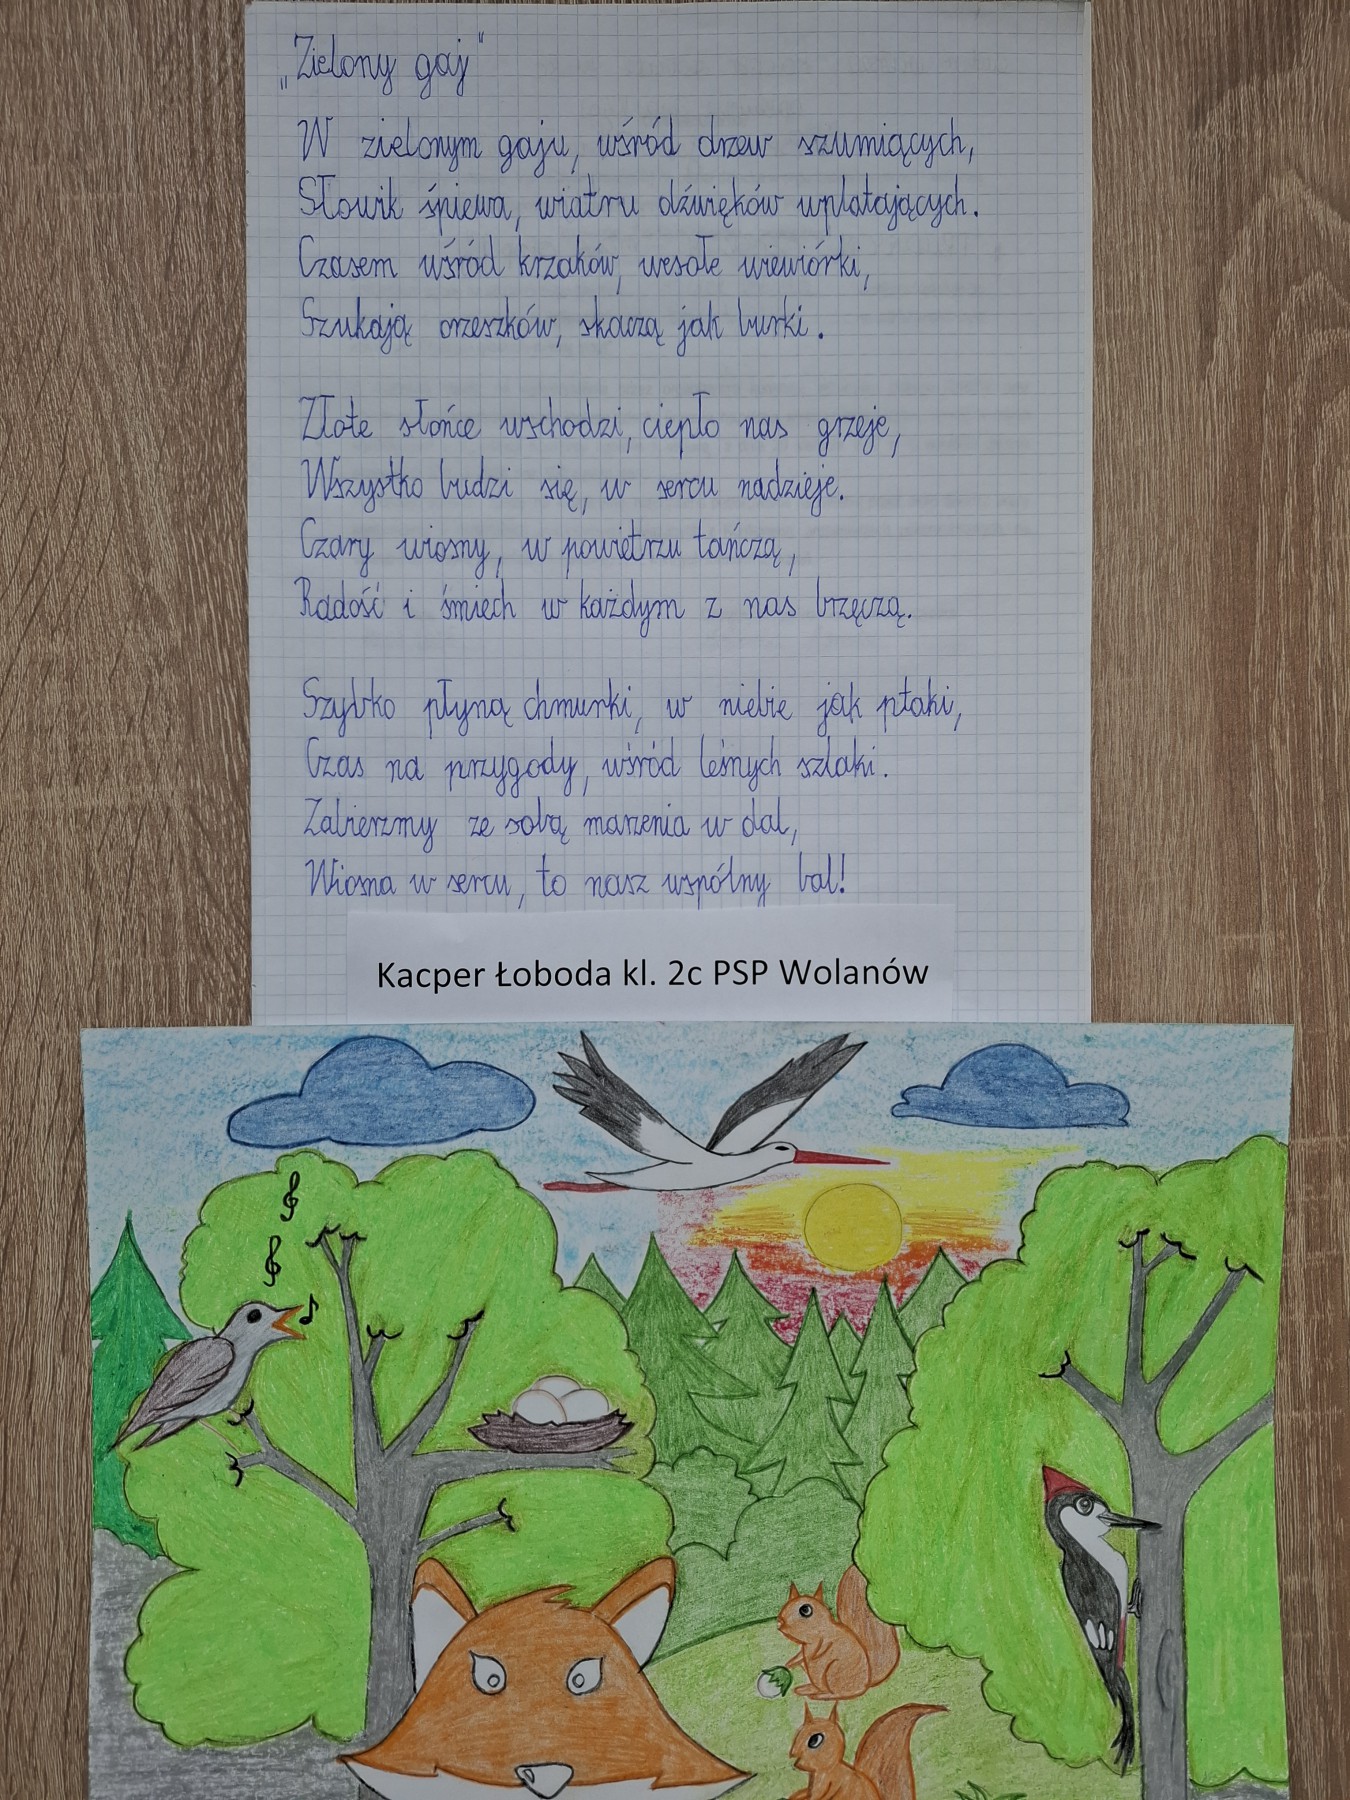 „Zielony gaj"
W zielonym gaju, wśród drzew szumiących,
Słowik śpiewa, wiatru dźwięków wplatających.
Czasem wśród krzaków, wesołe wiewiórki,
Szukają orzeszków, skaczą jak burki.
Złote słońce wschodzi, ciepło nas grzeje,
Wszystko budzi się, w sercu nadzieje.
Czary wiosny, w powietrzu tańczą,
Radość i śmiech w każdym z nas brzęczą.
Szybko płyną chmurki, w niebie jak ptaki,
Czas na przygody, wśród leśnych szlaki.
Zabierzmy ze sobą marzenia w dal,
Wiosna w sercu, to nasz wspólny bal!
Kacper Łoboda kl. 2c PSP Wolanów